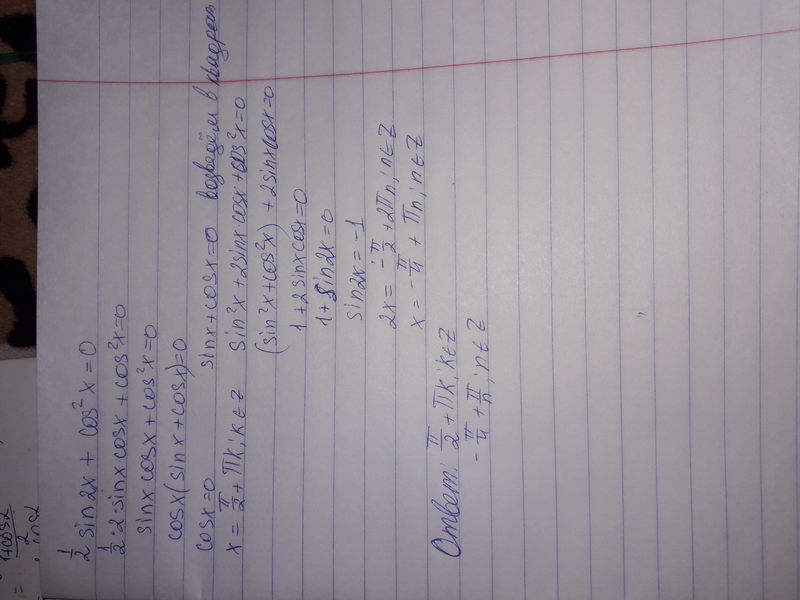 1/2 sin2x + cos²x = 0
1/2 · 2 · sinx cosx + cos²x = 0
sinx cosx + cos²x = 0
cosx(sinx + cosx) = 0
cosx = 0
x = π/2 + πk; k∈Z
sinx + cosx = 0 возведём в квадрат
sin²x + 2sinx cosx + cos²x = 0
(sin²x + cos²x) + 2sinx cosx = 0
1 + 2sinx cosx = 0
1 + sin2x = 0
sin2x = -1
2x = -π/2 + 2πn; n∈Z
x = -π/4 + πn; n∈Z
Ответ: π/2 + πk; k∈Z
-π/4 + π/n; n∈Z
1+cos2
2
=